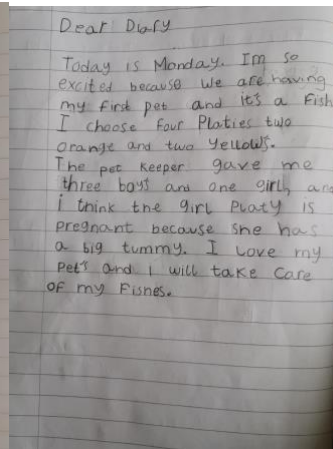 Dear Diary
Today is Monday. Im so
excited because we are having
my first pet and it's a Fish
I choose four Platies two
orange and two Yellows.
The pet keeper gave me
three boys and one girl, and
i think the girl Platy is
pregnant because she has
a big tummy. I Love my
Pets and i will take Care
OF my Fishes.